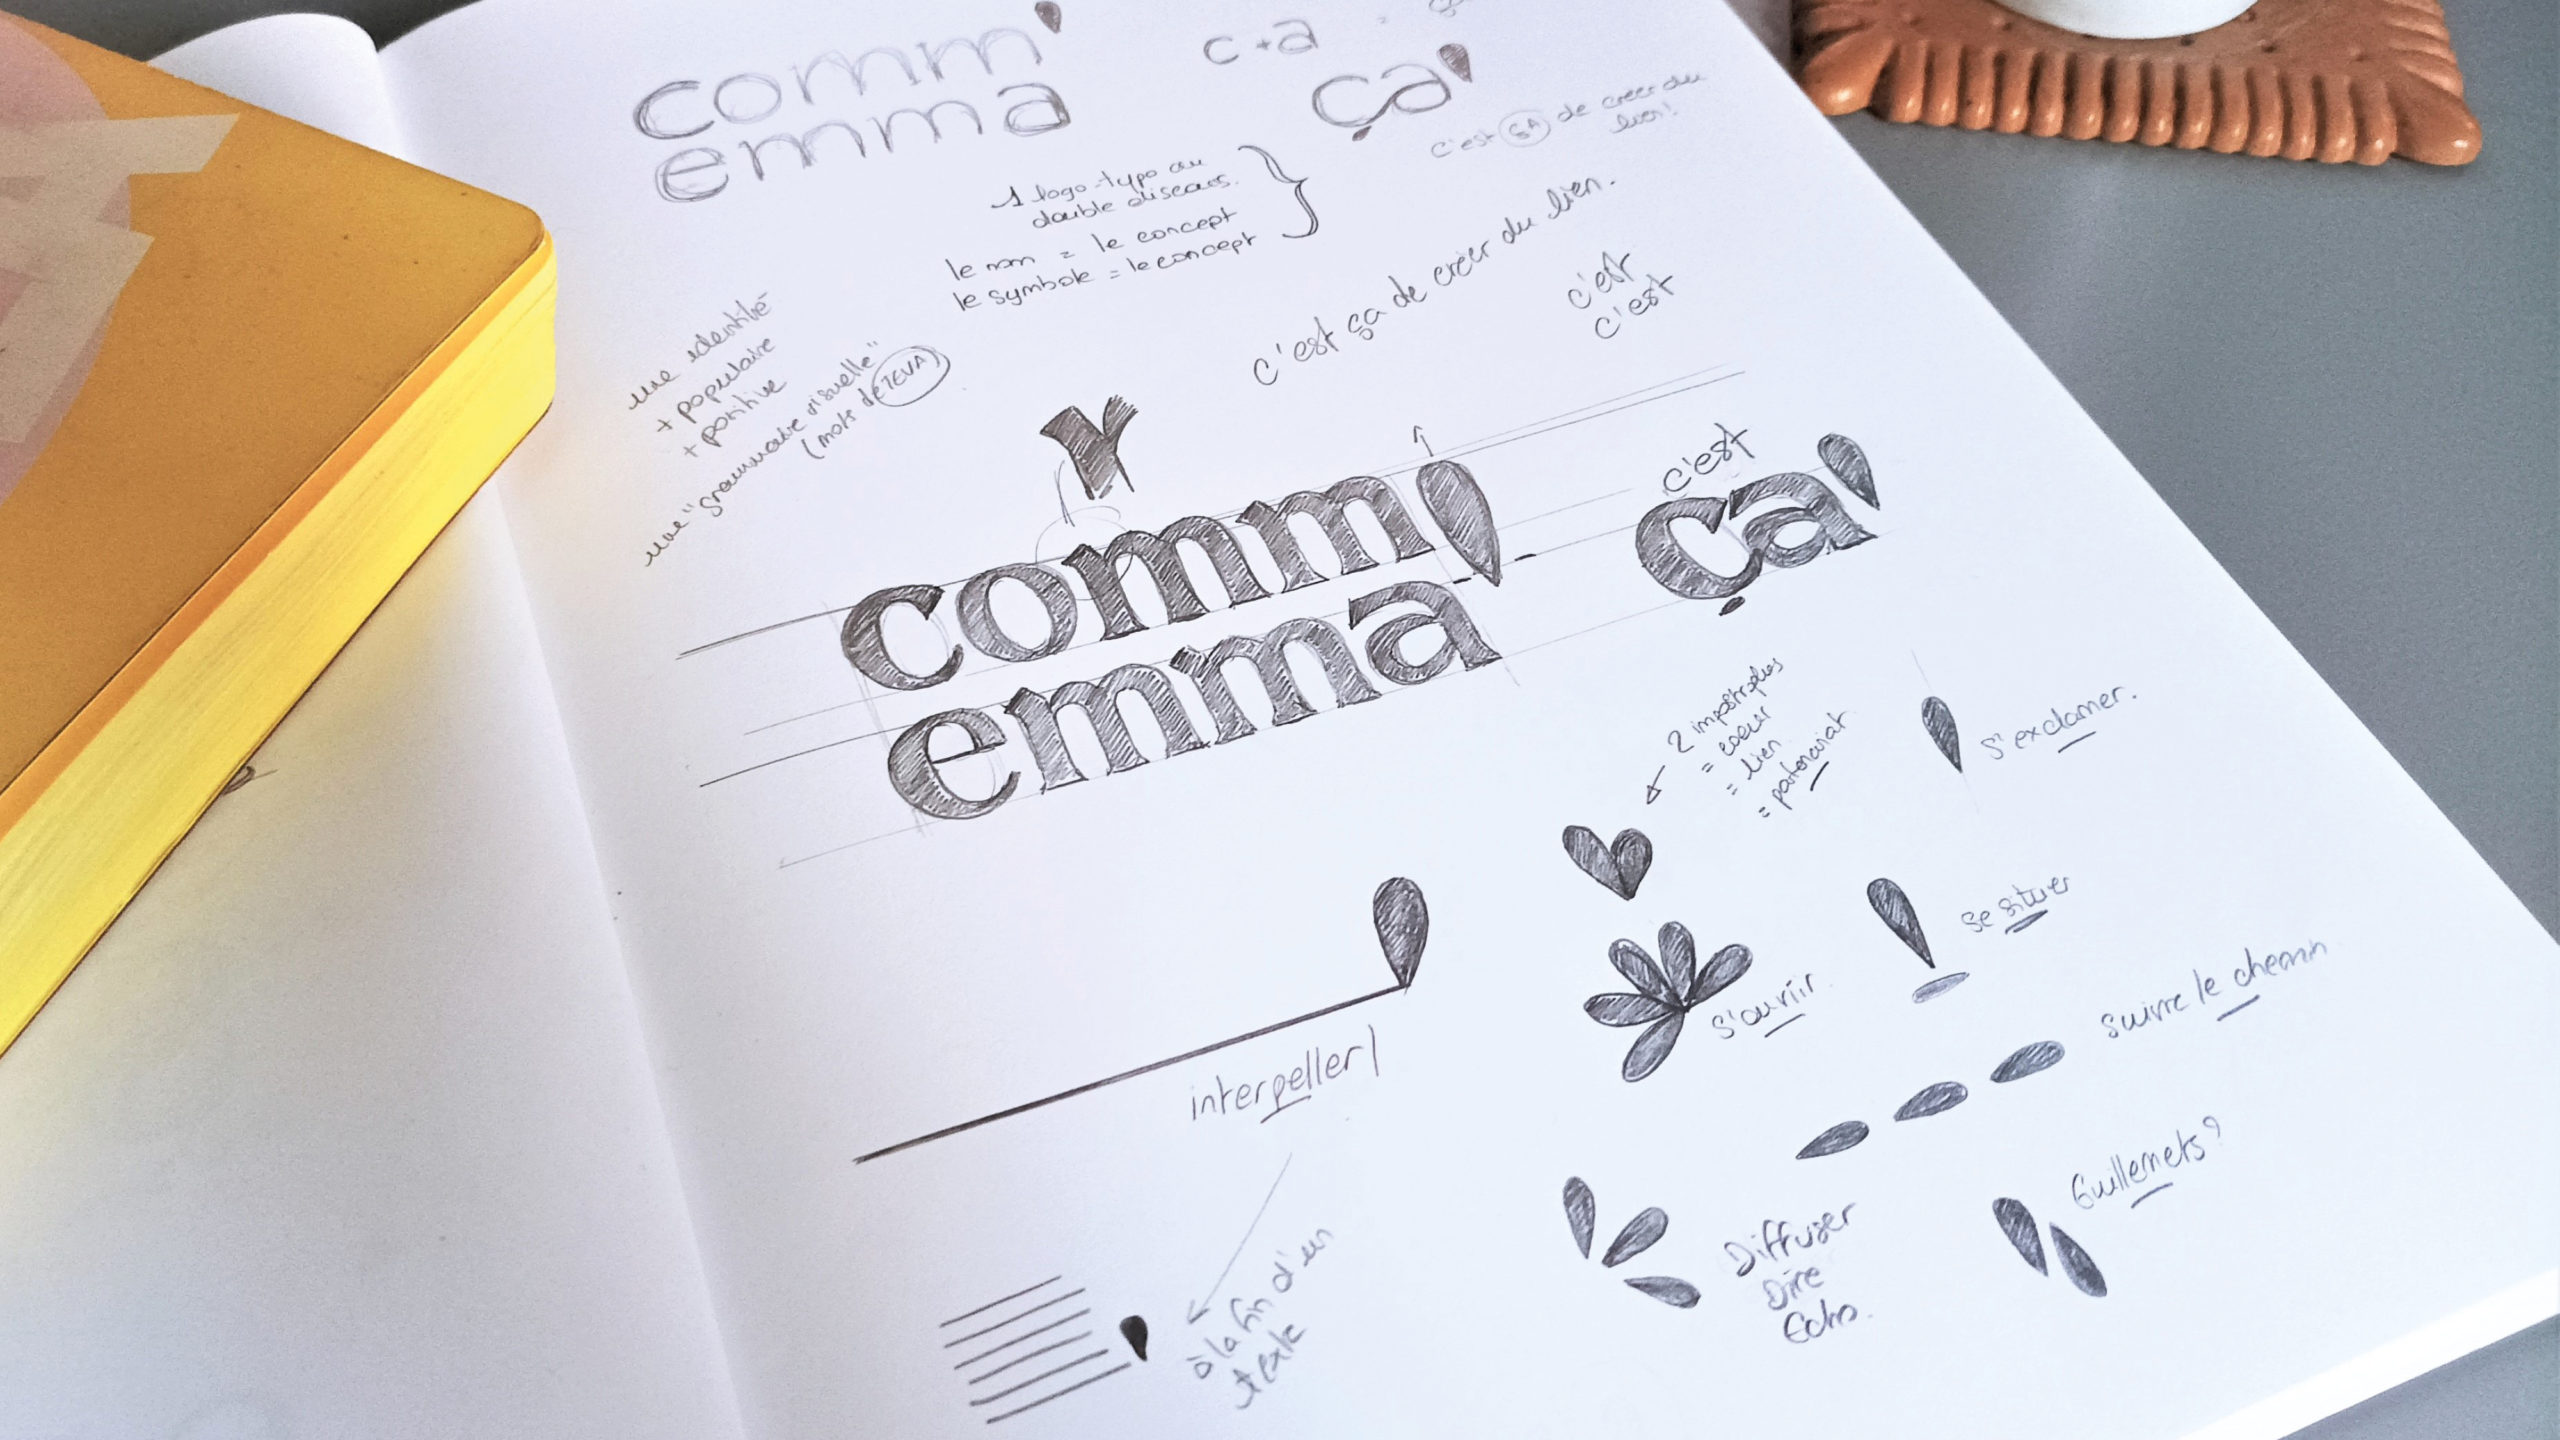 comm'
emma
c+a
ça'
c'est ça de creer du
lien!
1 logo-typo au
double discours.
le nom = le concept
le symbole = le concept
c'est ça de creer du lien.
c'est
c'est
une identité
+ populaire
+ positive
une "grammaire visuelle"
(mots de TEVA)
r
comm'
emma
c'est
ça'
2 impostrophes
= coeur
= lien
= patenariat
s'exclamer.
se situer
s'ouvrir
suivre le chemin
interpeller
à la fin d'un
texte
Diffuser
Dire
Echo.
Guillemets?